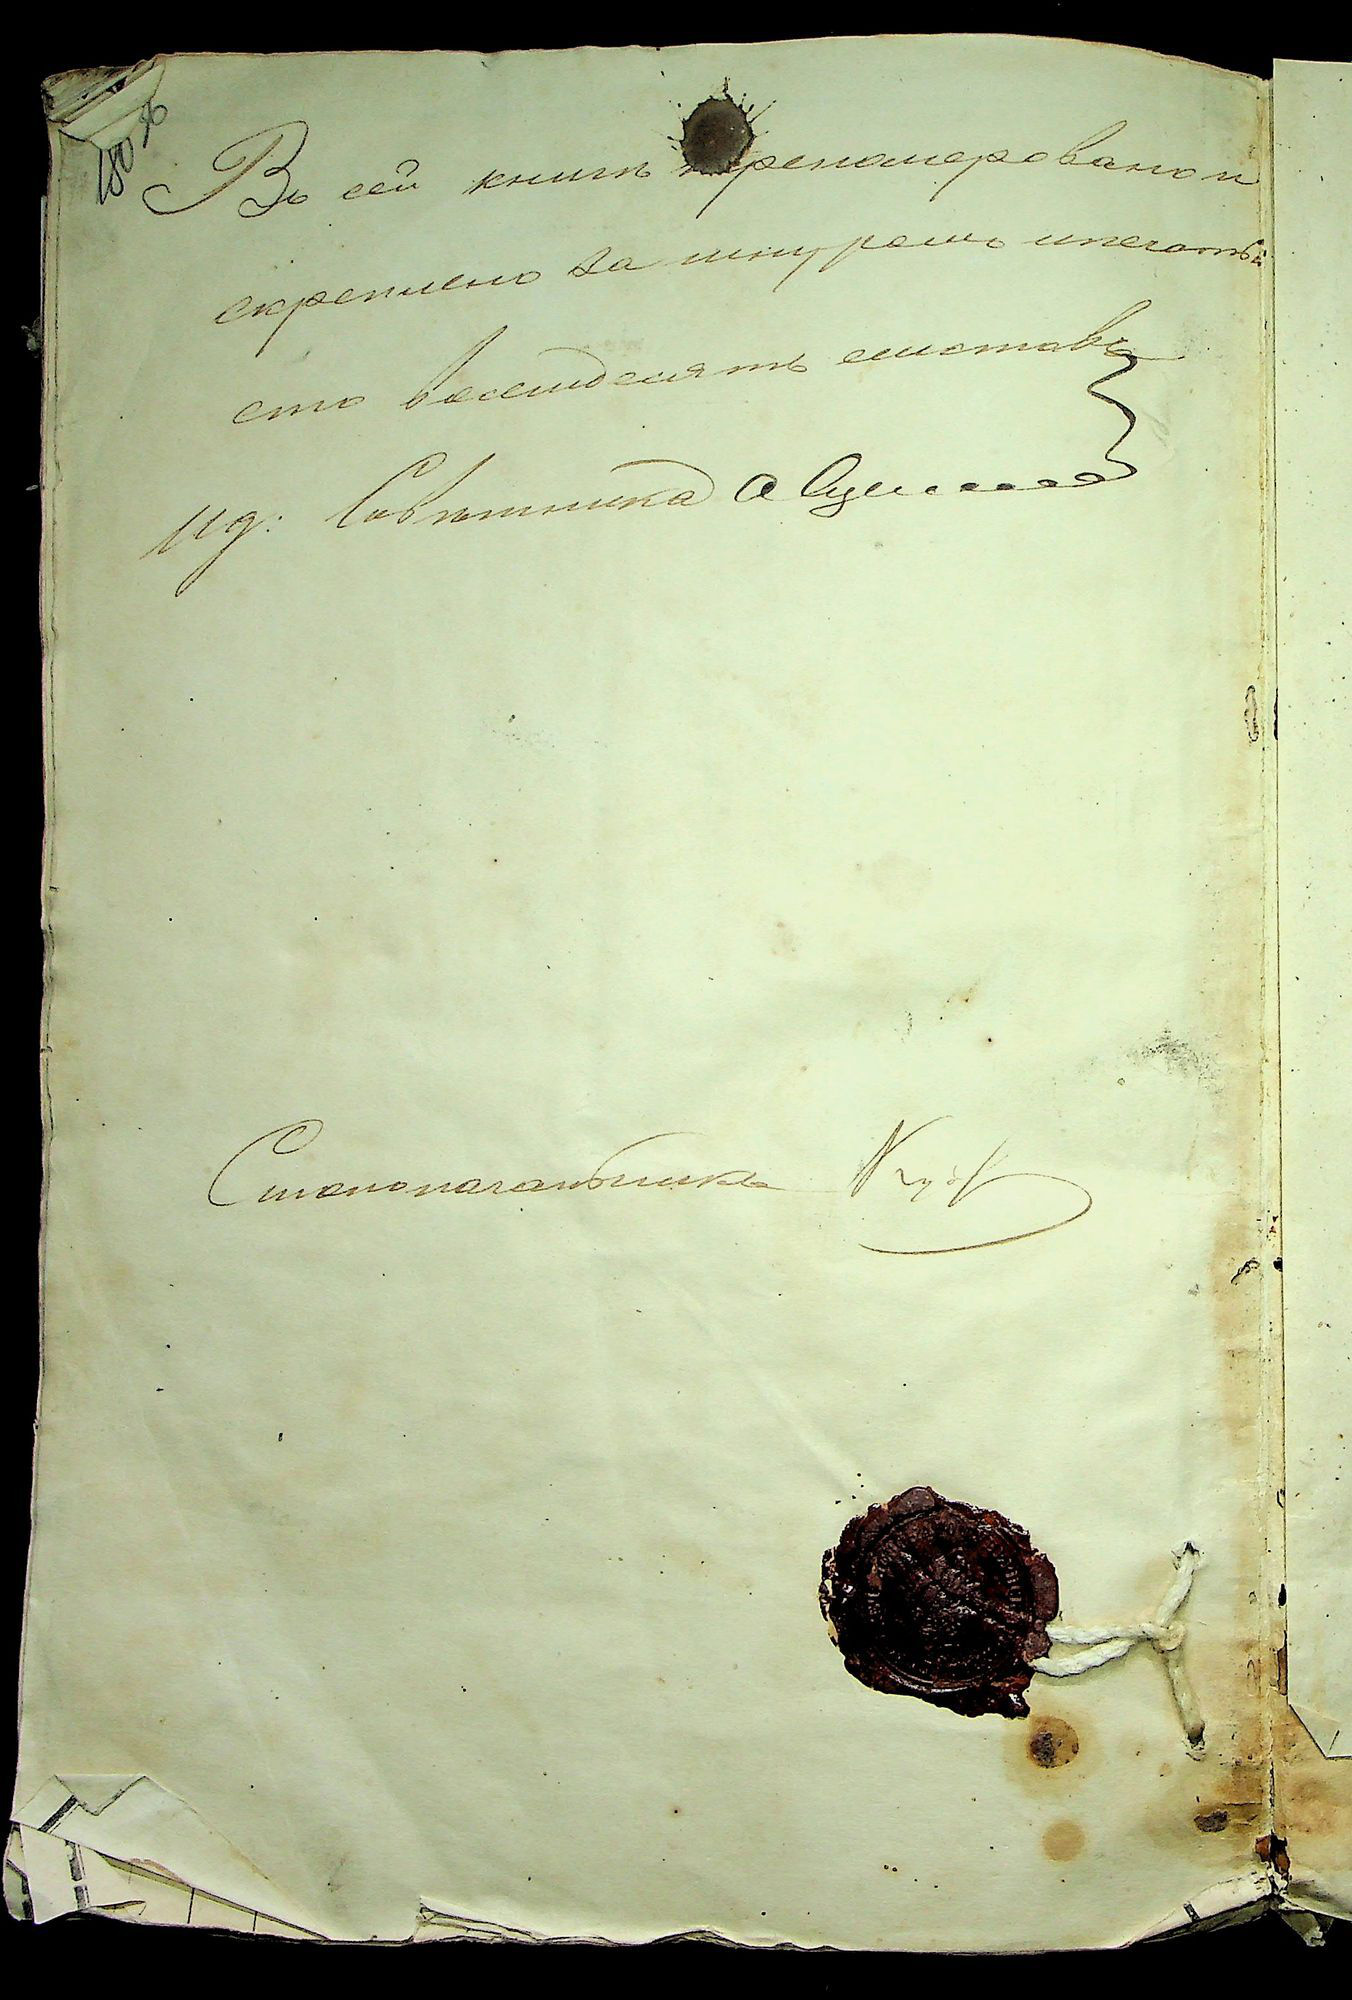 180
Въ сей книгѣ перенамеровано и
скреплено за шнуромъ и печатью
сто восемдесятъ листовъ
Ид: Совѣтника
Столоначальникъ